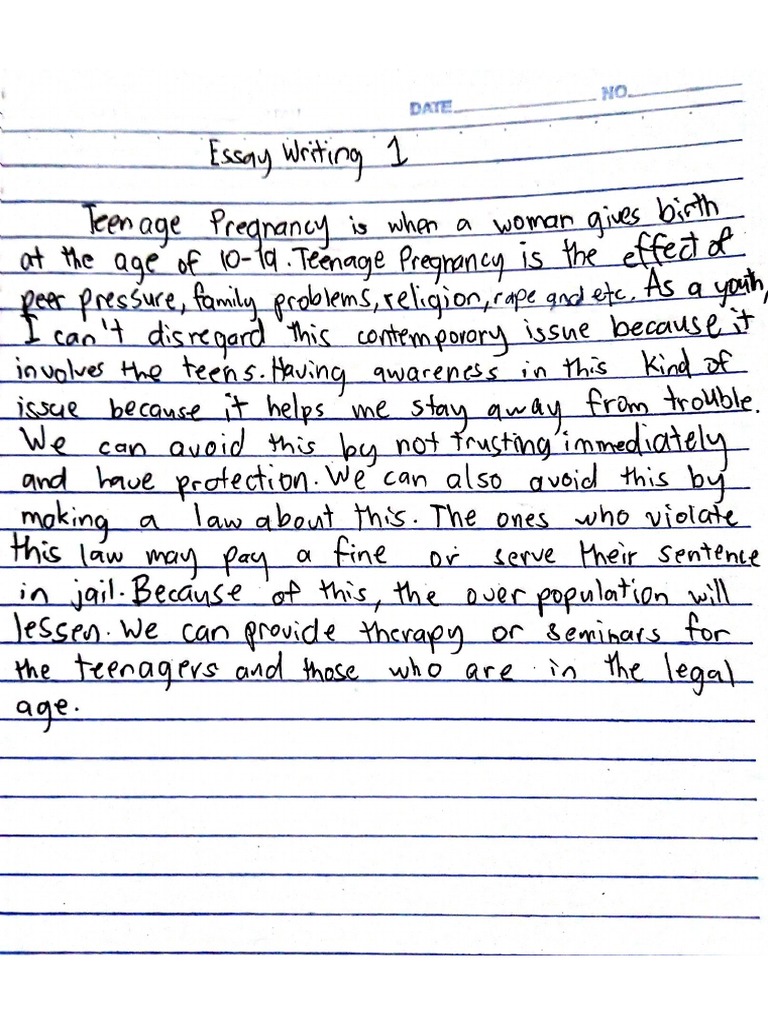 DATE NO.
Essay Writing 1
Teenage Pregnancy is when a woman gives birth
at the age of 10-19. Teenage Pregnancy is the effect of
peer pressure, family problems, religion, rape and etc. As a youth,
I can't disregard this contemporary issue because it
involves the teens. Having awareness in this kind of
issue because it helps me stay away from trouble.
We can avoid this by not trusting immediately
and have protection. We can also avoid this by
making a law about this. The ones who violate
this law may pay a fine or serve their sentence
in jail. Because of this, the over population will
lessen. We can provide therapy or seminars for
the teenagers and those who are in the legal
age.